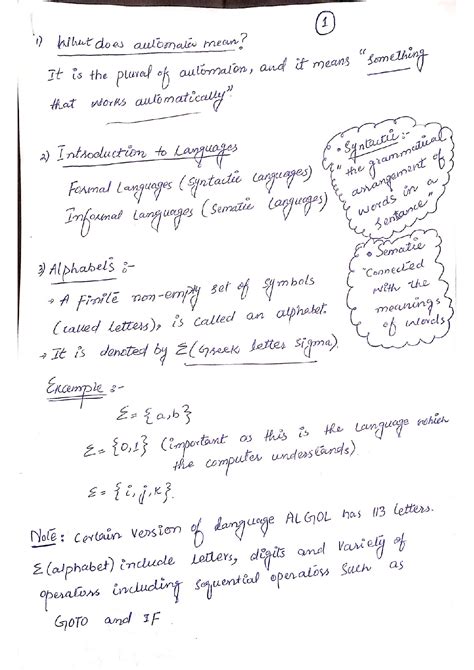 ①
1) What does automata mean?
It is the plural of automaton, and it means "something
that works automatically".
2) Introduction to Languages
Formal Languages (Syntactic Languages)
Informal Languages (Sematic Languages)
• Syntactic :-
"the grammatical
arrangement of
words in a
sentence"
• Sematic
"connected
with the
meanings
of words
3) Alphabets :-
→ A finite non-empty set of symbols
(called letters), is called an alphabet.
→ It is denoted by Σ (Greek letter sigma).
Example :-
Σ = {a,b}
Σ = {0,1} (important as this is the language which
the computer understands).
Σ = {i,j,k}.
Note: Certain version of language ALGOL has 113 letters.
Σ (alphabet) include letters, digits and variety of
operators including sequential operators such as
GOTO and IF